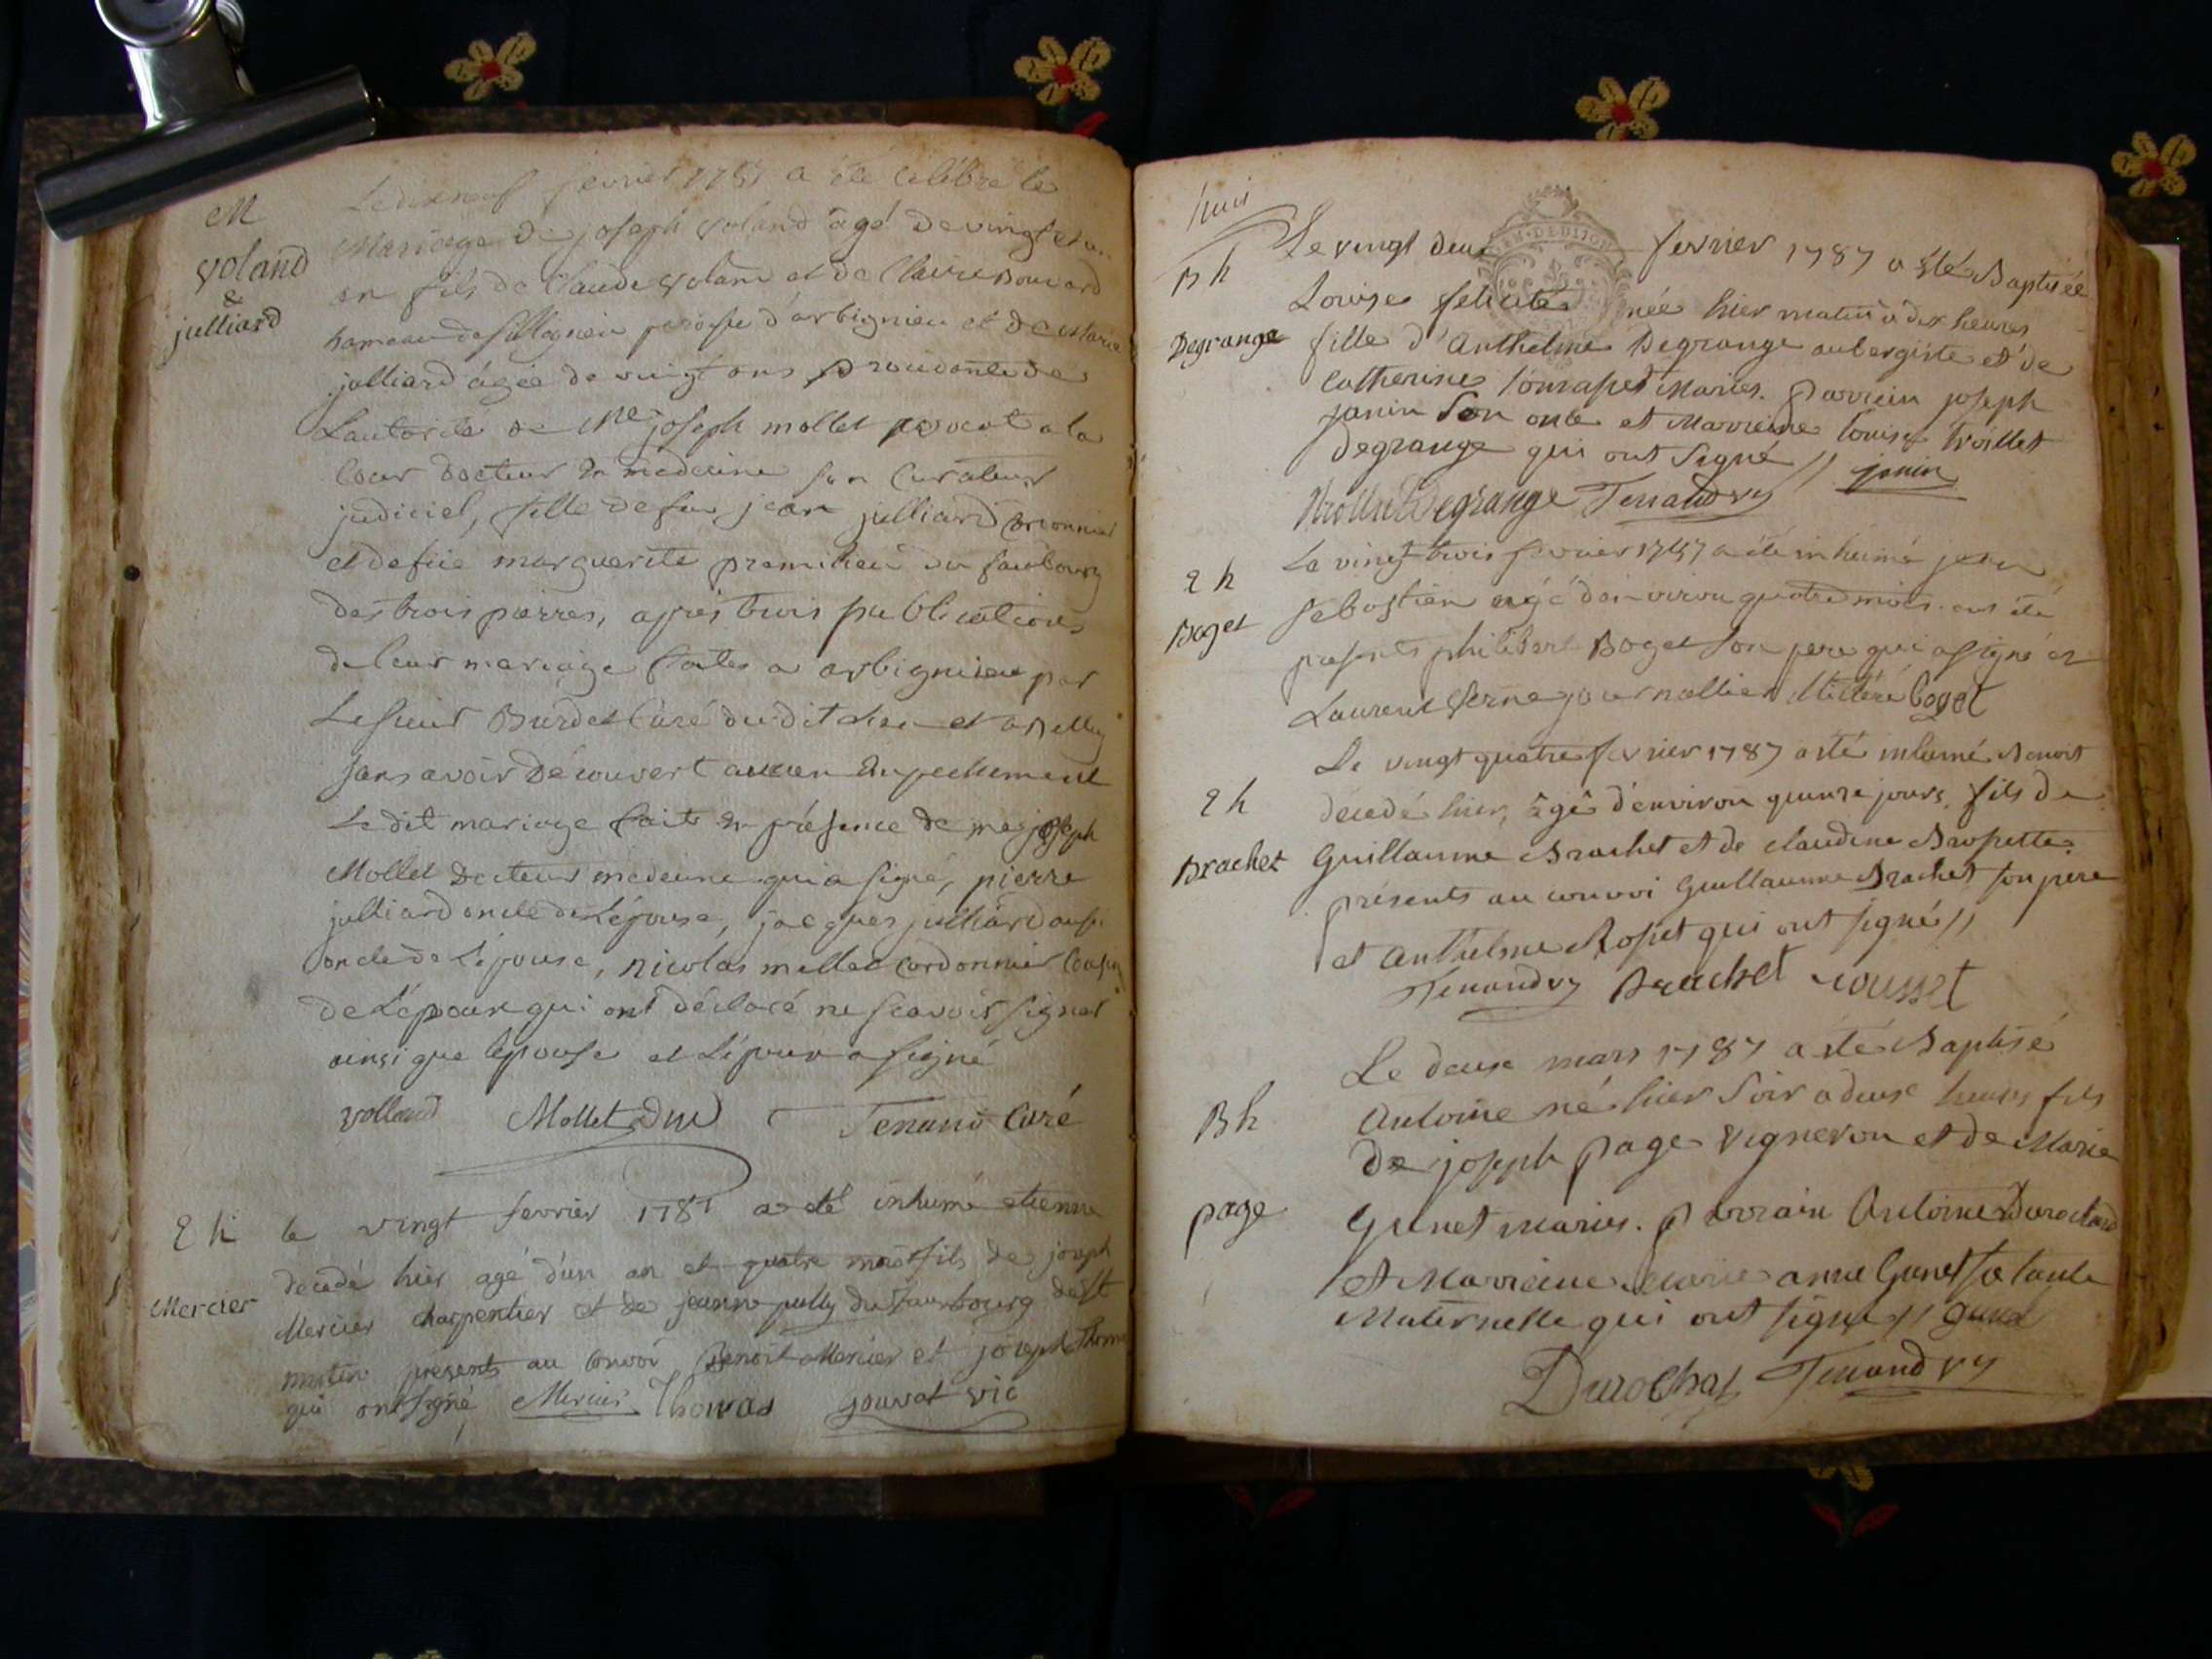 M
voland
&
julliard
Le dixneuf fevrier 1787 a été célébré le
Mariage de joseph voland âgé de vingt et un
an fils de Claude voland et de Claire Bouvard
hameau de paroisse d'arbignieu et de Marie
julliard âgée de vingt ans procédante de
L'autorité de Me joseph mollet avocat a la
Cour docteur en medecine son Curateur
judiciel, fille de feu jean julliard Cordonnier
et de fûe marguerite premilieu du fauxbourg
des trois pierres, après trois publications
de leur mariage faites a arbignieu par
Le sieur Burdet Curé dudit lieu et a Belley
sans avoir découvert aucun Empechement
Ledit mariage fait En présence de me joseph
Mollet Docteur medecine qui a signé, pierre
julliard oncle de L'épouse, jacques julliard aussi
oncle de L'épouse, nicolas millet Cordonnier Cousin
de L'époux qui ont déclaré ne scavoir signer
ainsi que l'épouse et L'époux a signé
volland Mollet Dm Tenand Curé
E h
Mercier
le vingt fevrier 1787 a été inhumé etienne
decedé hier agé d'un an et quatre mois fils de joseph
Mercier charpentier et de jeanne pully du fauxbourg de st
martin présents au convoi Benoit Mercier et joseph Thomas
qui ont signé Mercier Thomas gouvat vic
huit
B h
Degrange
Le vingt deux fevrier 1787 a été Baptisée
Louise felicité née hier matin à dix heures
fille d'Anthelme Degrange aubergiste et de
Catherine Mariés. Parrein joseph
janin son oncle et Marreine Louise Trollet
Degrange qui ont signé // janin
Trollet Degrange Tenand vy
E h
Boget
Le vingt trois fevrier 1787 a été inhumé jean
Sebastien agé d'environ quatre mois. ont été
présents philibert Boget son pere qui a signé et
Laurent journallier illitéré boget
E h
Brachet
Le vingt quatre fevrier 1787 a été inhumé Benoit
décedé hier, âgé d'environ quinze jours, fils de
Guillaume Brachet et de claudine
présents au convoi Guillaume Brachet son pere
et Anthelme Rosset qui ont signé //
Tenand vy Brachet rousset
B h
page
Le deux mars 1787 a été Baptisé
Antoine né hier soir a deux heures fils
de joseph page vigneron et de Marie
Gunet mariés. Parrain Antoine Durochat
et Marreine Marie anne Gunet sa tante
Maternelle qui ont signé // gunet
Durochat Tenand vy